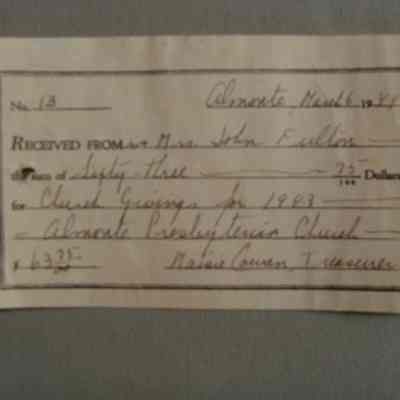 No. 13 Almonte March 6 1984
RECEIVED FROM Mrs. John Fulton
the sum of Sixty-three 75/100 Dollars
for Church Givings for 1983
Almonte Presbyterian Church
$ 63.75 Maisie Cowen, Treasurer